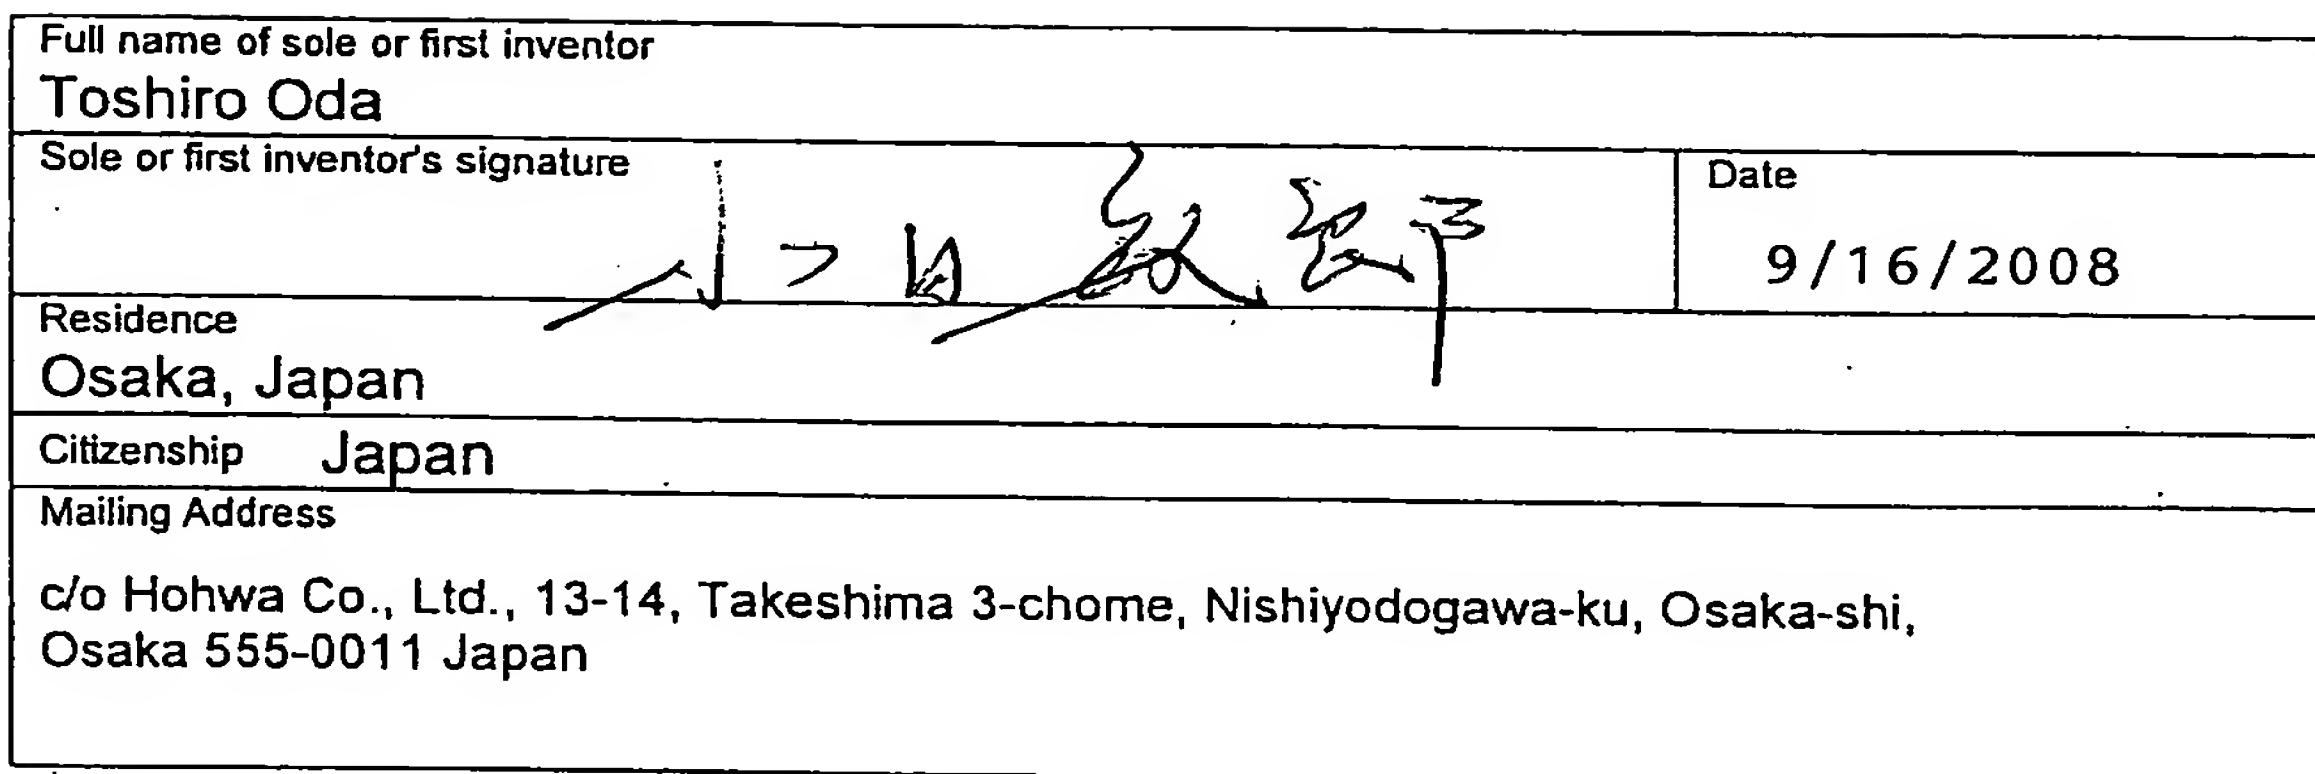 Full name of sole or first inventor
Toshiro Oda
Sole or first inventor's signature
小田敏郎
Date
9/16/2008
Residence
Osaka, Japan
Citizenship Japan
Mailing Address
c/o Hohwa Co., Ltd., 13-14, Takeshima 3-chome, Nishiyodogawa-ku, Osaka-shi,
Osaka 555-0011 Japan